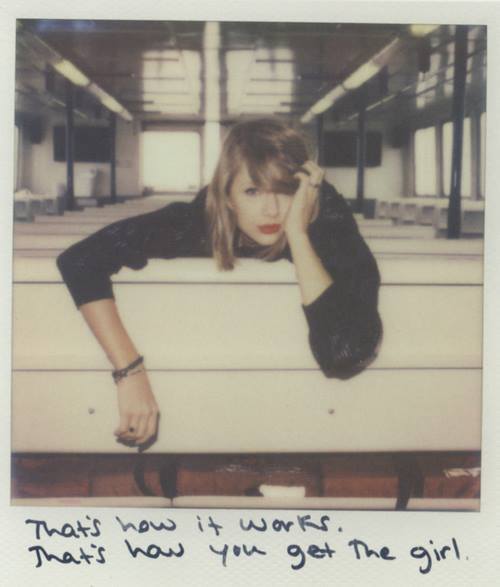 That's how it works.
That's how you get The girl.